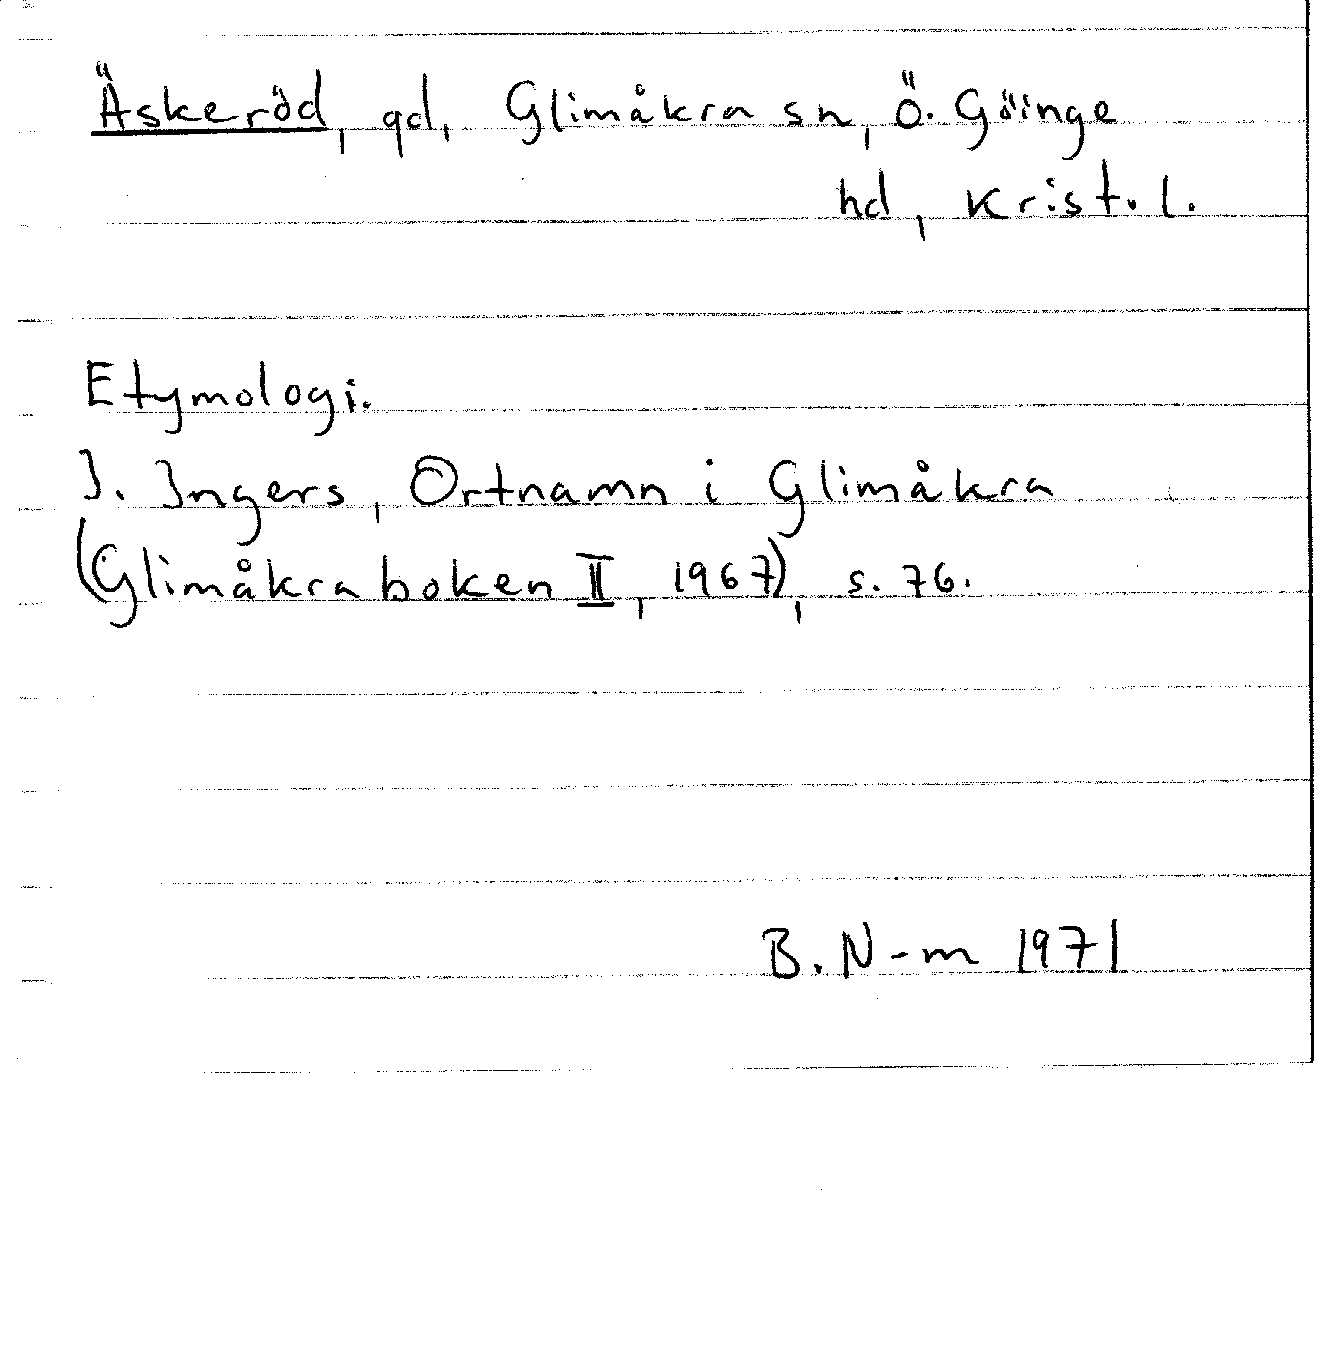 Äskeröd, gd, Glimåkra sn, Ö. Göinge
hd, Krist. l.
Etymologi.
I. Ingers, Ortnamn i Glimåkra
(Glimåkraboken II, 1967), s. 76.
B. N-m 1971